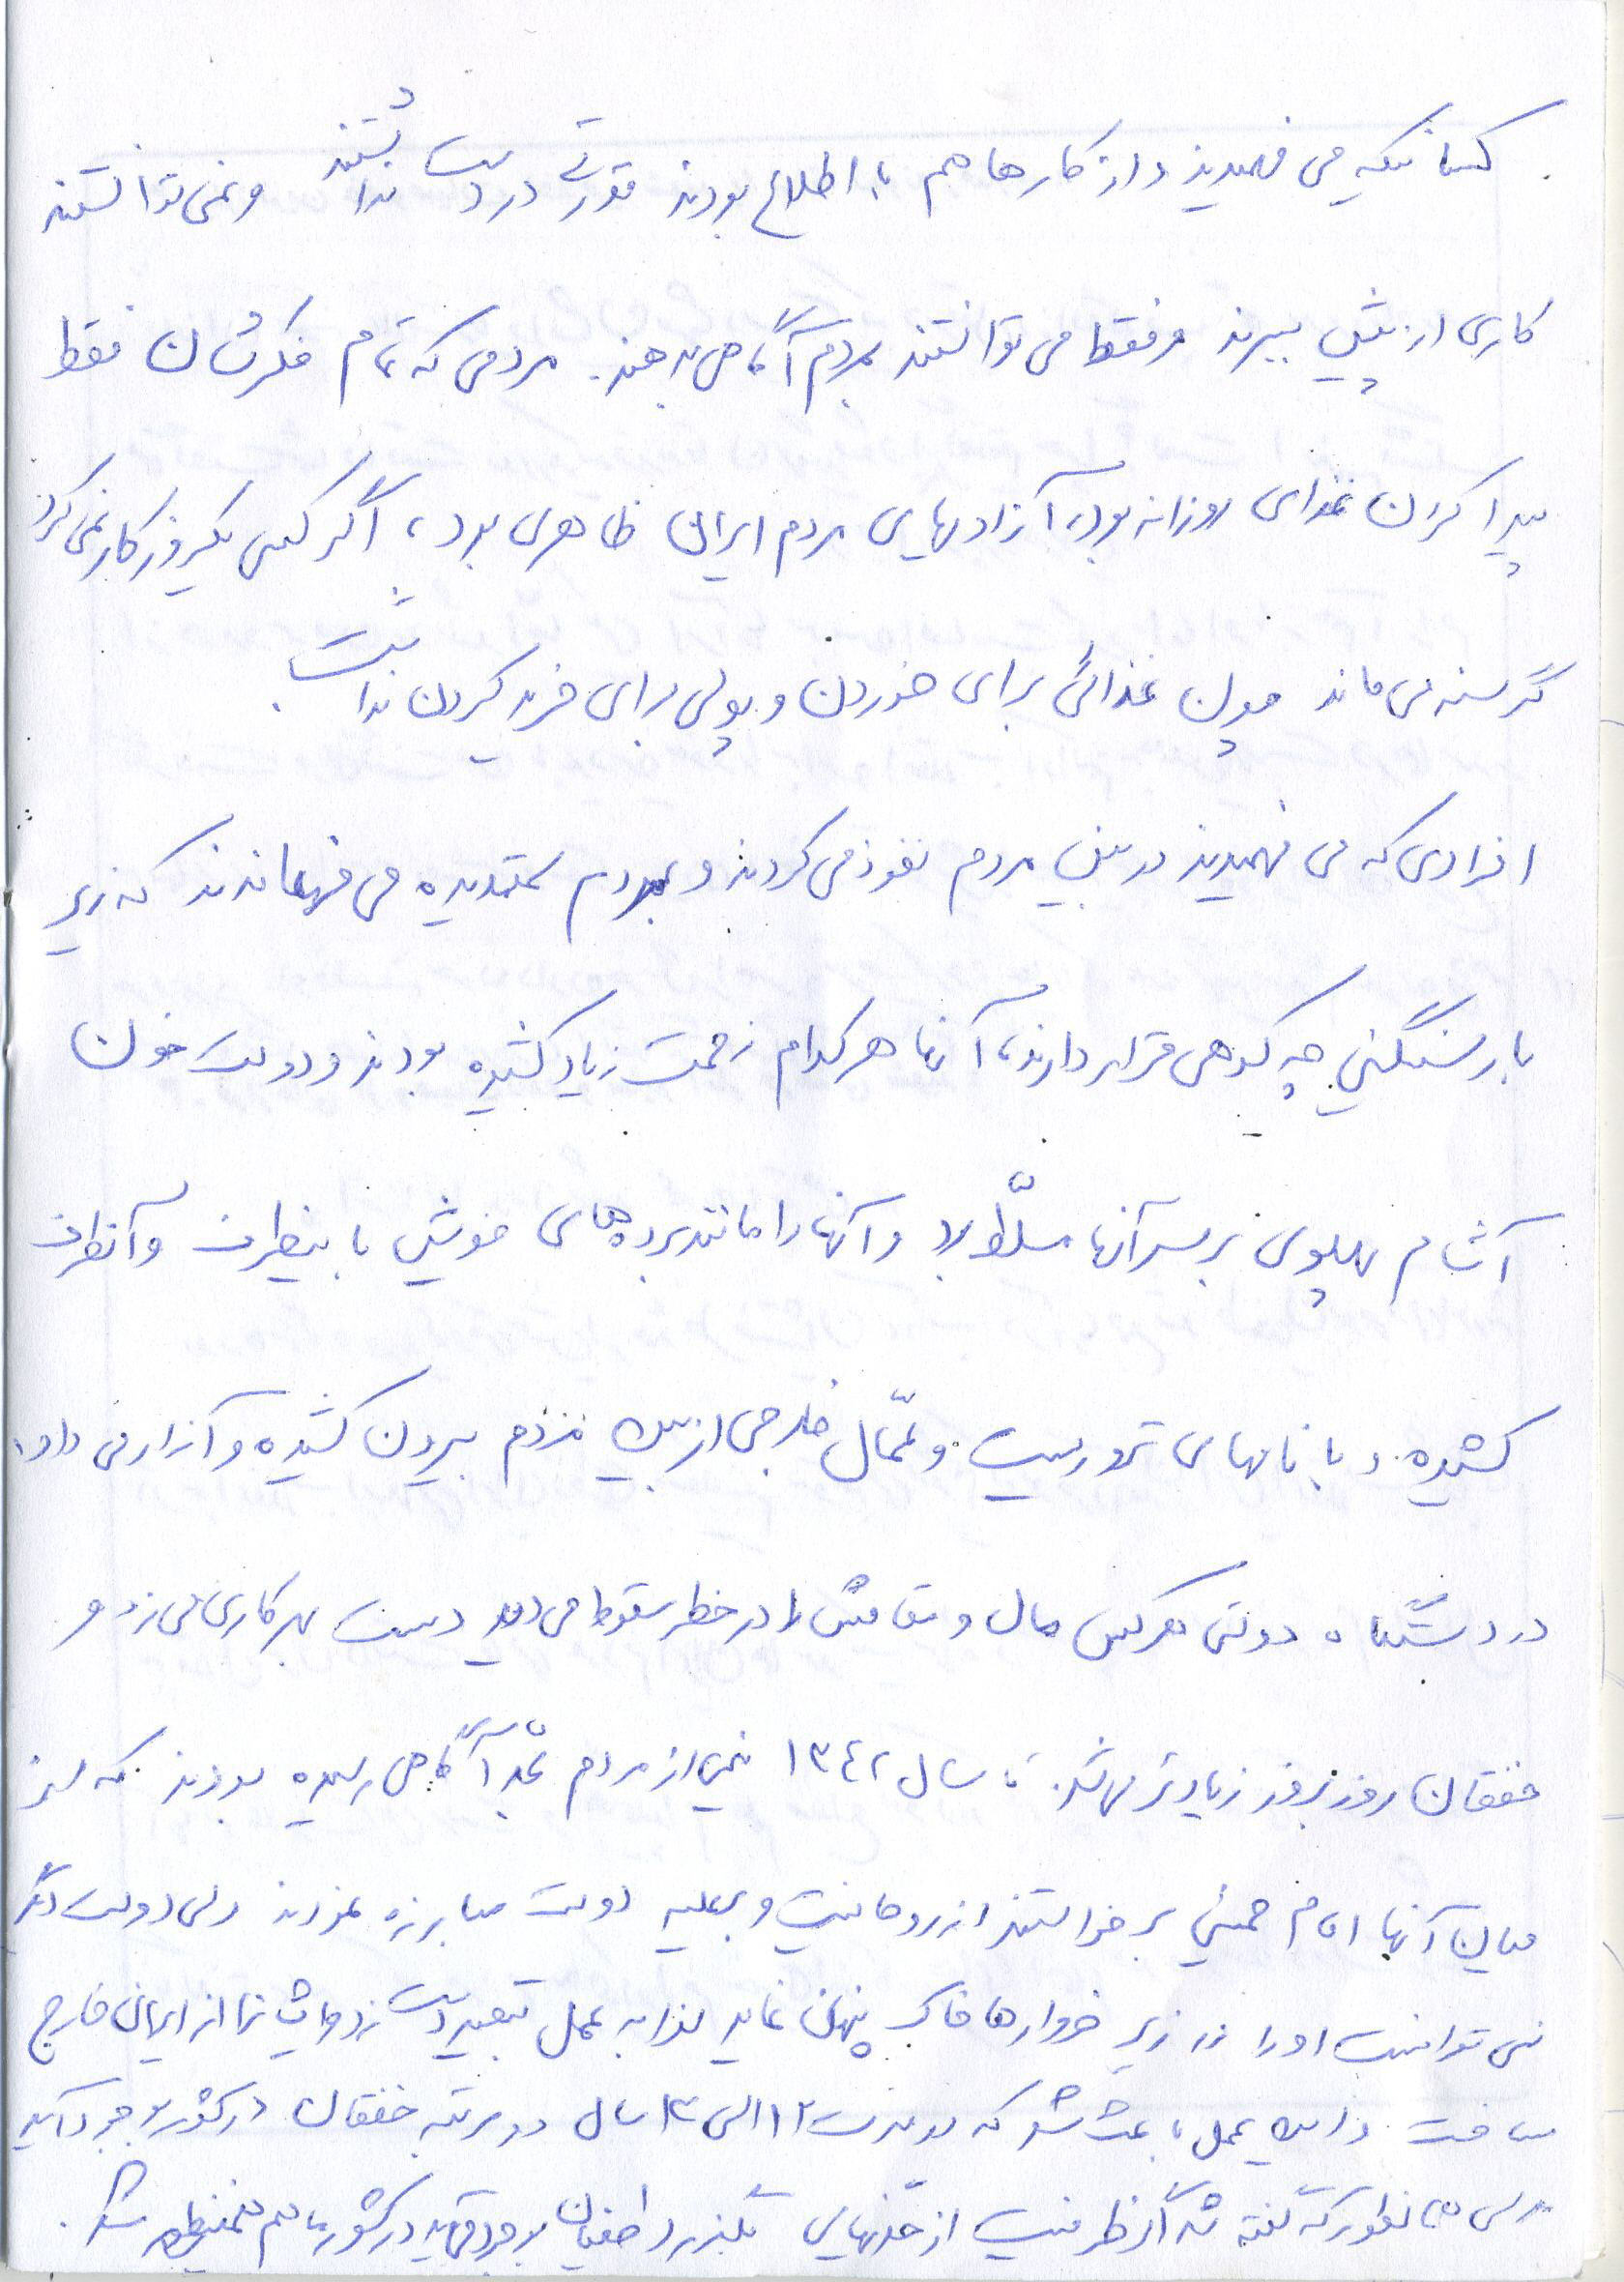 کسانیکه می فهمیدند و از کارها هم با اطلاع بودند قدرتی در دست نداشتند و نمی توانستند
کاری از پیش ببرند و فقط می توانستند بمردم آگاهی بدهند. مردمی که تمام فکرشان فقط
پیدا کردن غذای روزانه بود، آزادیهای مردم ایران ظاهری بود، اگر کسی یکروز کار نمی کرد
گرسنه می ماند چون غذائی برای خوردن و پولی برای خرید کردن نداشت.
افرادی که می فهمیدند در بین مردم نفوذ می کردند و بمردم ستمدیده می فهماندند که زیر
بار سنگینی چه کوهی قرار دارند، آنها هر کدام زحمت زیاد کشیده بودند و دولت خون
آشام پهلوی بر سر آنها مسلّط بود و آنها را مانند برده های خویش باینطرف و آنطرف
کشیده و با نامهای تروریست و عمّال خارجی از بین مردم بیرون کشیده و آزار می داد،
در دستگاه دولتی هرکس مال و مقامش را در خطر سقوط می دید دست بهر کاری می زد و
خفقان روز بروز زیادتر می شد. تا سال ۱۳۴۲ نیمی از مردم بحدّ آگاهی رسیده بودند که از
میان آنها امام خمینی برخواستند از روحانیت و بعلیه دولت مبارزه نمودند ولی دولت دیگر
نمی توانست او را در زیر خروارها خاک پنهان نماید لذا به عمل تبعید دست زد و ایشانرا از ایران خارج
ساخت و این عمل باعث شد که در مدت ۱۲ الی ۱۳ سال دو مرتبه خفقان در کشور بوجود آید
ولی همانطور که گفته شد اگر ظرفیت از حدّ نهایی بگذرد بوجود می آید در کشور ما هم همینطور شد.